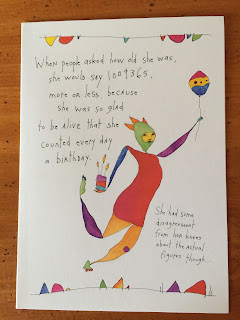 When people asked how old she was,
she would say 100+365,
more or less, because
she was so glad
to be alive that she
counted every day
a birthday.
She had some
disagreement
from her knees
about the actual
figures though...